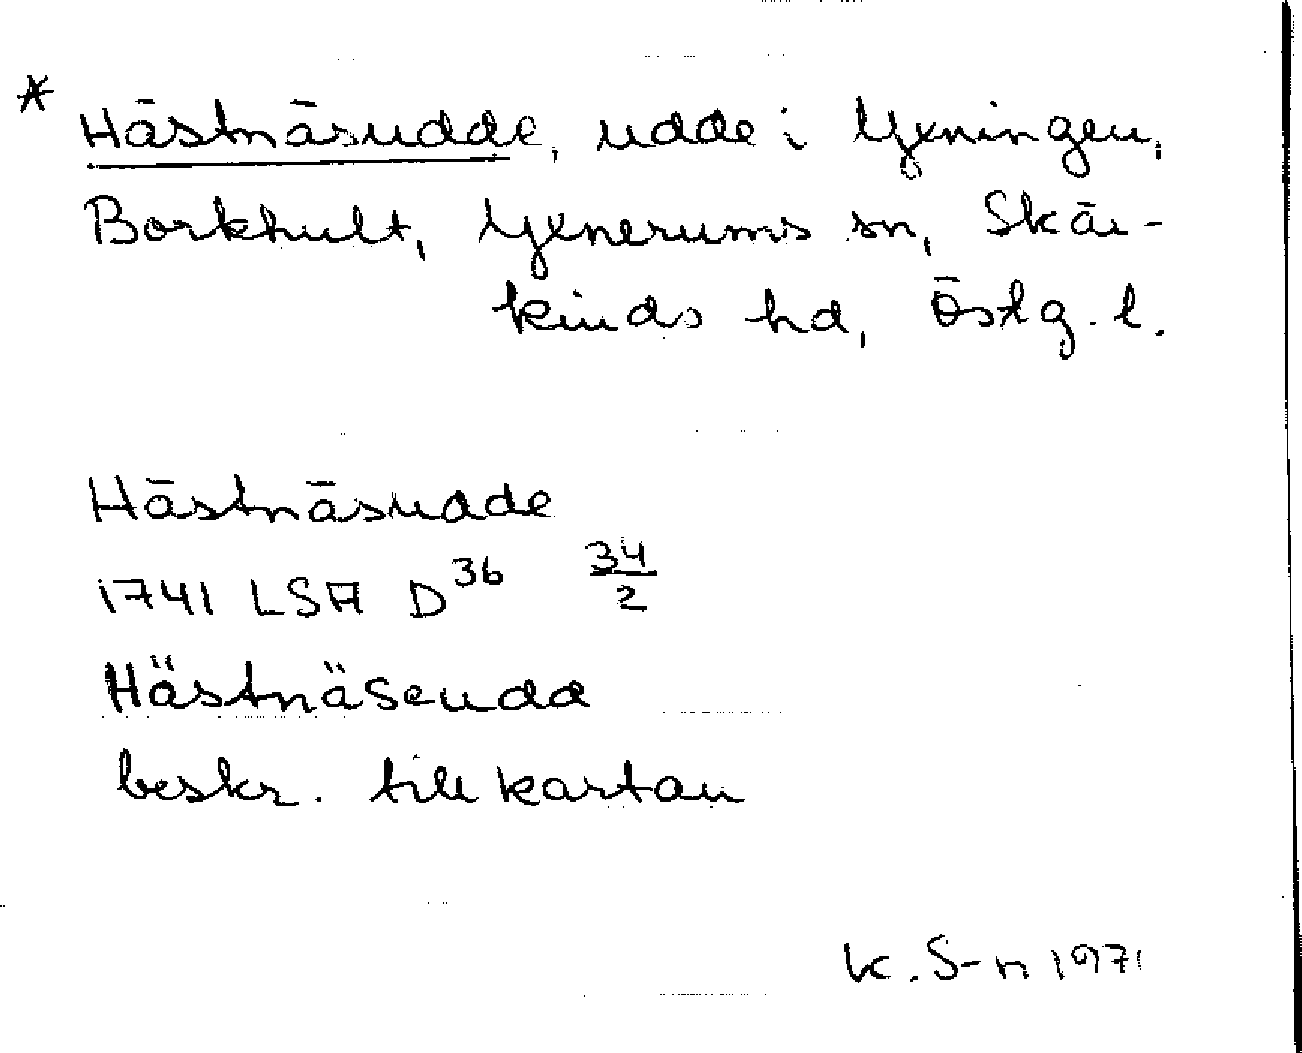 * Hästnäsudde, udde i Yxningen,
Borkhult, Yxnerums sn, Skär-
kinds hd, Östg. l.
Hästnäsudde
1741 LSA D³⁶ 34/2
Hästnäseudd
beskr. till kartan
K. S-n 1971